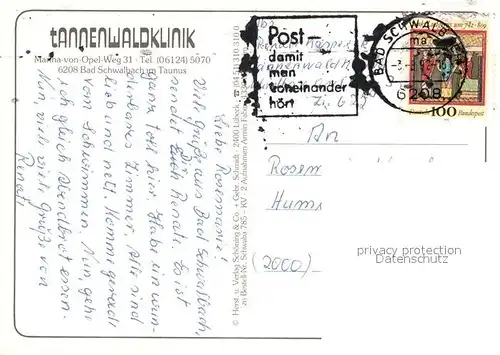 TANNENWALDKLINIK
Martha-von-Opel-Weg 31 · Tel. (06124) 5070
6208 Bad Schwalbach im Taunus
Liebe Rosemarie!
Viele Grüße aus Bad Schwalbach,
sendet Dir Renate. Es ist
ganz toll hier. Habe ein wun-
derbares Zimmer. Alle sind
lieb und nett. Komme gerade
vom Schwimmen. Nun, gehe
ich gleich Abendbrot essen.
Nun, viele viele Grüße von
Renate
© Horst u. Verlag Schöning & Co. + Gebr. Schmidt · 2400 Lübeck
zu Bestell-Nr. Schwaba 785 - KV · 2 Aufnahmen Armin Fabe
Post -
damit
man
voneinander
hört
BAD SCHWALB
6208
100
Bundespost
An
Rosem
Hums
(2000)
privacy protection
Datenschutz